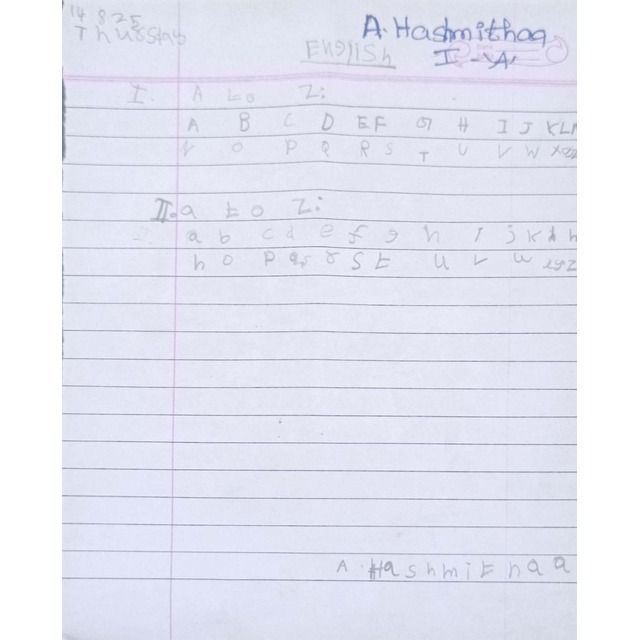 14 8 25
Thursday
A. Hashmithaa
English
I - "A"
I. A to Z:
A B C D E F G H I J K L M
N O P Q R S T U V W X Y Z
II. a to z:
a b c d e f g h i j k l m
n o p q r s t u v w x y z
A. Hashmithaa